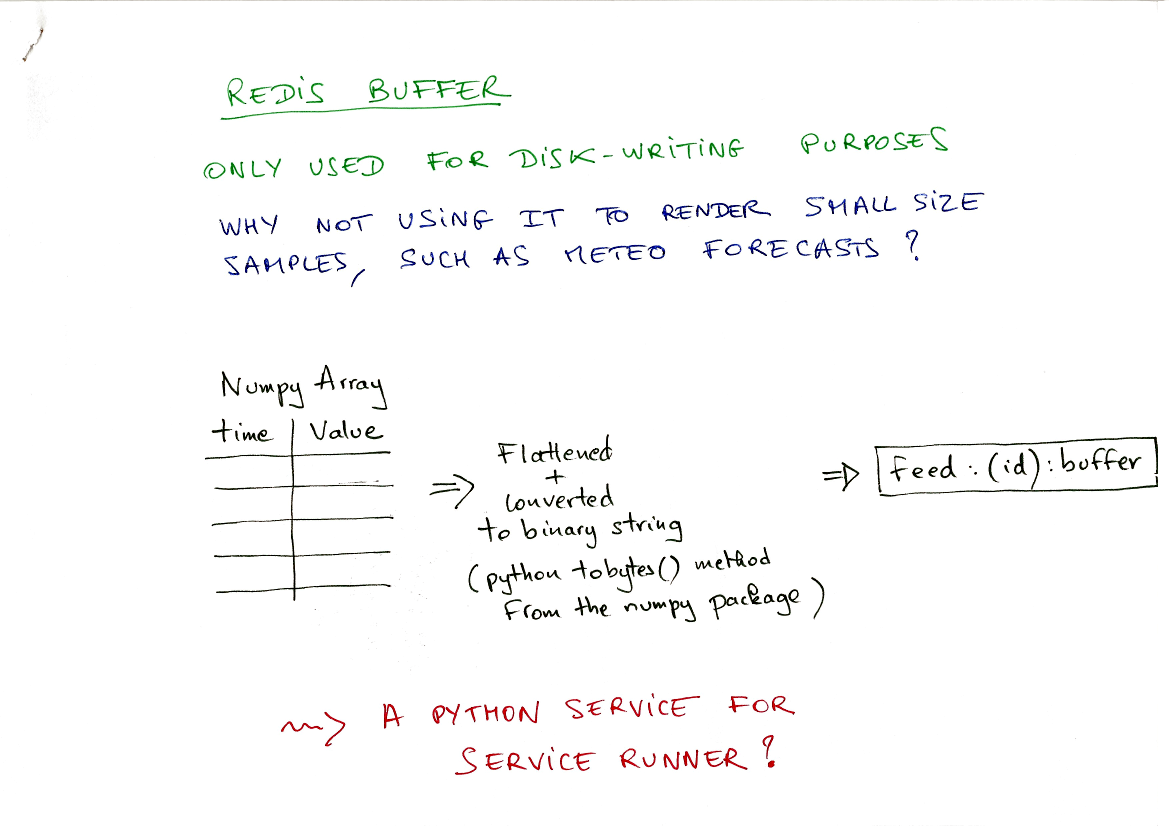 REDiS BUFFER
ONLY USED FOR DiSK-WRiTiNG PURPOSES
WHY NOT USiNG IT TO RENDER SMALL SiZE
SAMPLES, SUCH AS METEO FORECASTS ?
Numpy Array
time | Value
Flattened
+
Converted
to binary string
(python tobytes() method
From the numpy package)
⇒ feed : (id) : buffer
~~> A PYTHON SERViCE FOR
SERViCE RUNNER ?